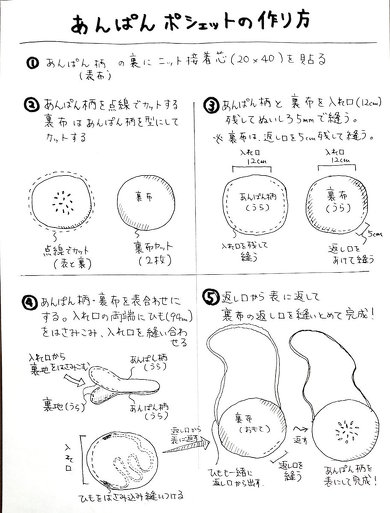 あんぱん ポシェットの作り方
① あんぱん柄 の裏に ニット接着芯(20×40)を貼る
(表布)
② あんぱん柄を点線でカットする
裏布 はあんぱん柄を型にして
カットする
点線でカット
(表と裏)
裏布
裏布カット
(2枚)
③ あんぱん柄 と 裏布を入れ口(12cm)
残して ぬいしろ5mmで縫う。
※ 裏布は、返し口を5cm残して縫う。
入れ口
12cm
入れ口
12cm
あんぱん柄
(うら)
裏布
(うら)
5cm
入れ口を残して
縫う
返し口を
あけて縫う
④ あんぱん柄・裏布を表合わせに
する。入れ口の両端にひも(94cm)
をはさみこみ、入れ口を縫い合わ
せる
入れ口から
裏地をはさみこむ
あんぱん柄
(うら)
裏地(うら)
あんぱん柄
(うら)
入れ口
返し口から
表に返す
ひもをはさみ込み縫いつける
⑤ 返し口から 表に返して
裏布の返し口を縫いとめて完成!
裏布
(おもて)
返す
ひもも一緒に
返し口から出す
返し口を
縫う
あんぱん柄を
表にして完成!